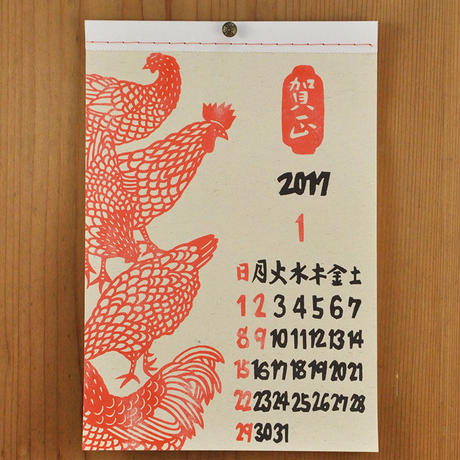 賀正
2017
1
日月火水木金土
1 2 3 4 5 6 7
8 9 10 11 12 13 14
15 16 17 18 19 20 21
22 23 24 25 26 27 28
29 30 31